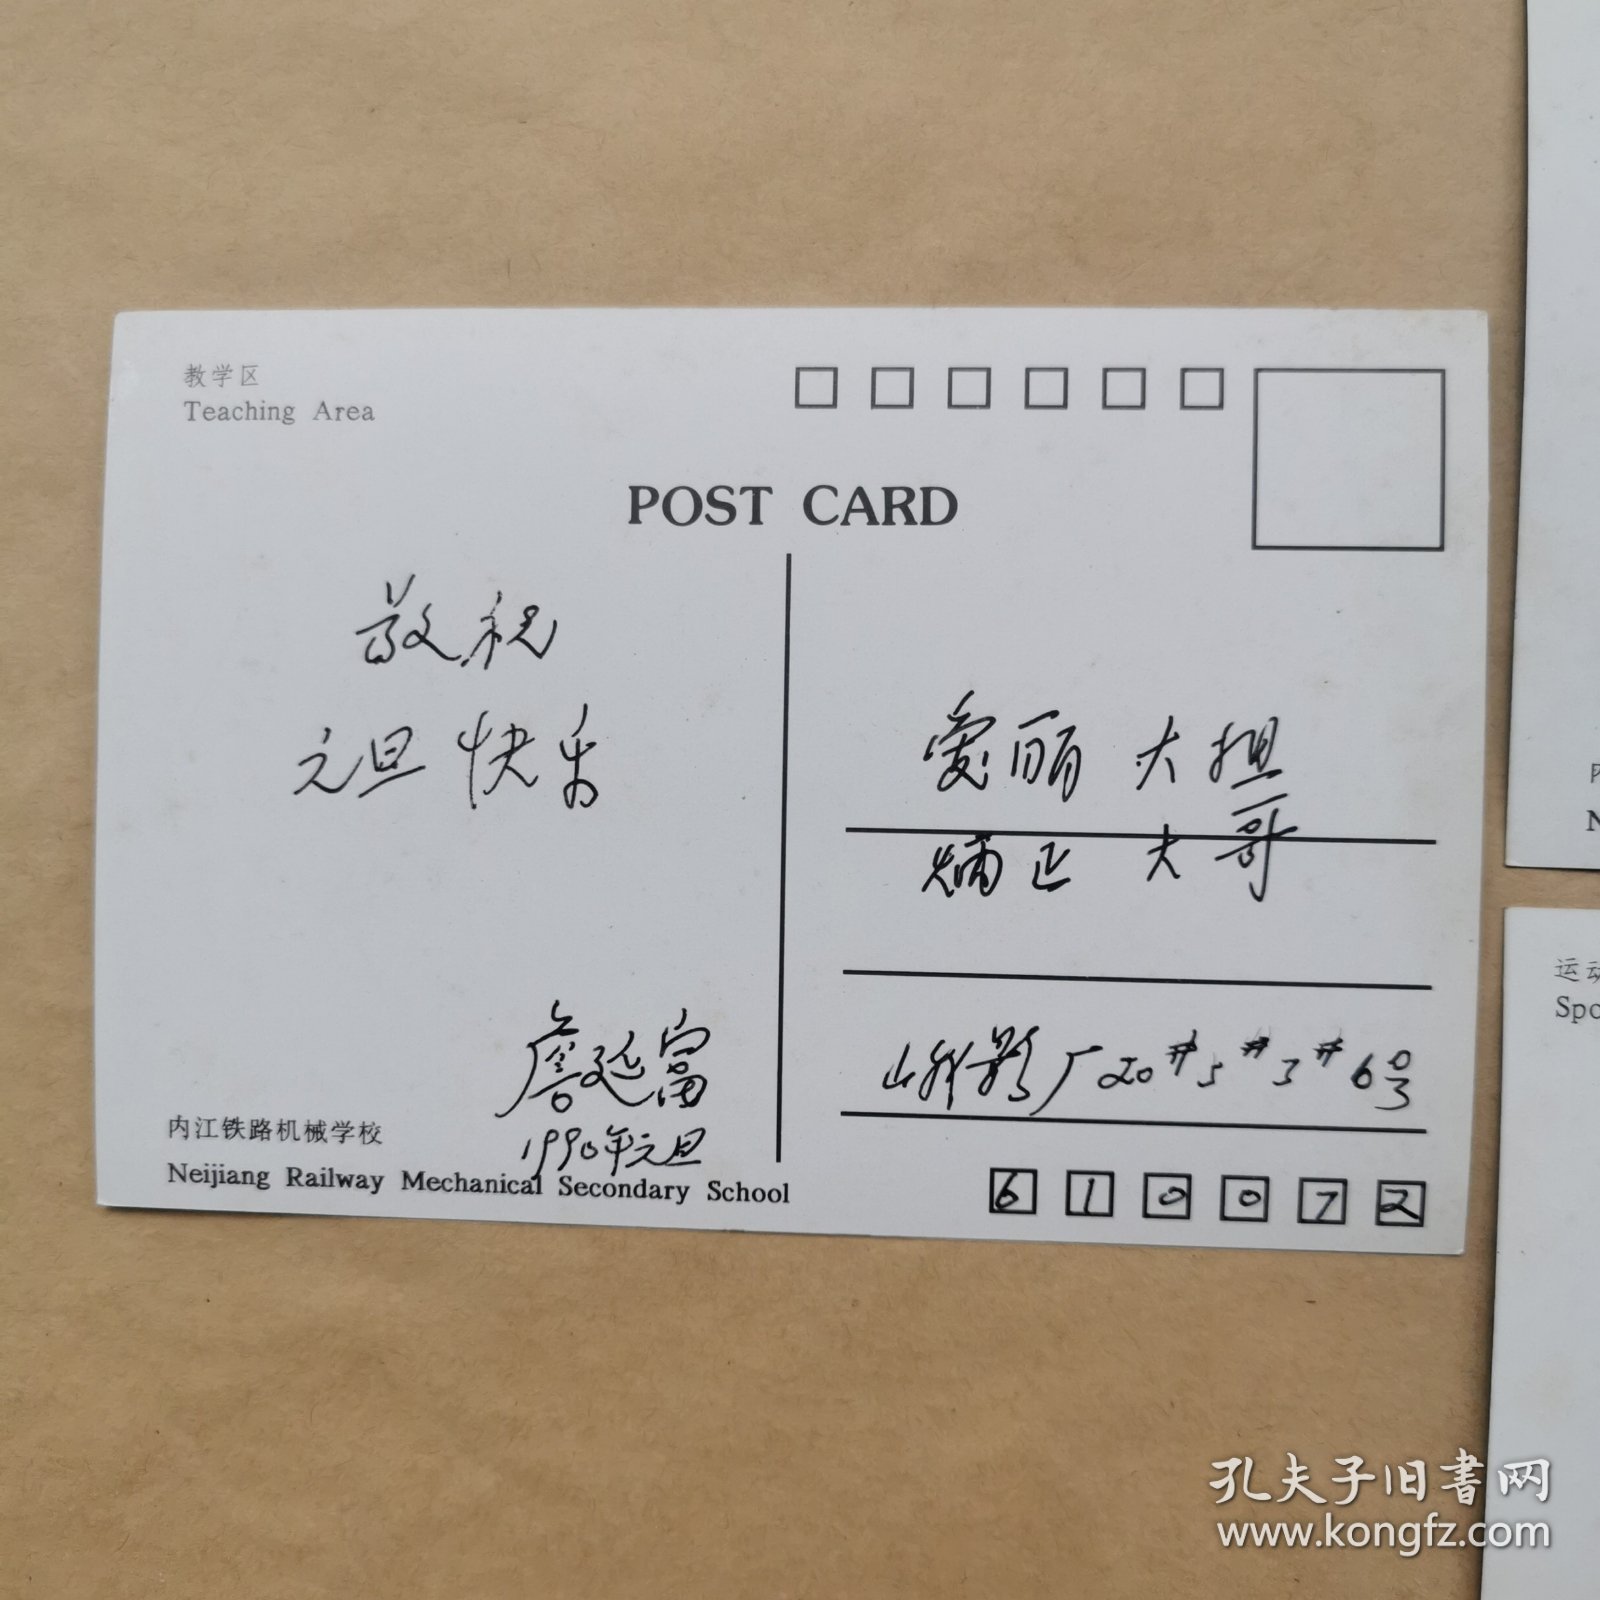 教学区
Teaching Area
POST CARD
敬祝
元旦 快乐
詹延富
1990年元旦
内江铁路机械学校
Neijiang Railway Mechanical Secondary School
爱丽 大姐
炳正 大哥
峨影厂20#5#3#6号
610072
运动
Spo
内
N
孔夫子旧书网
www.kongfz.com